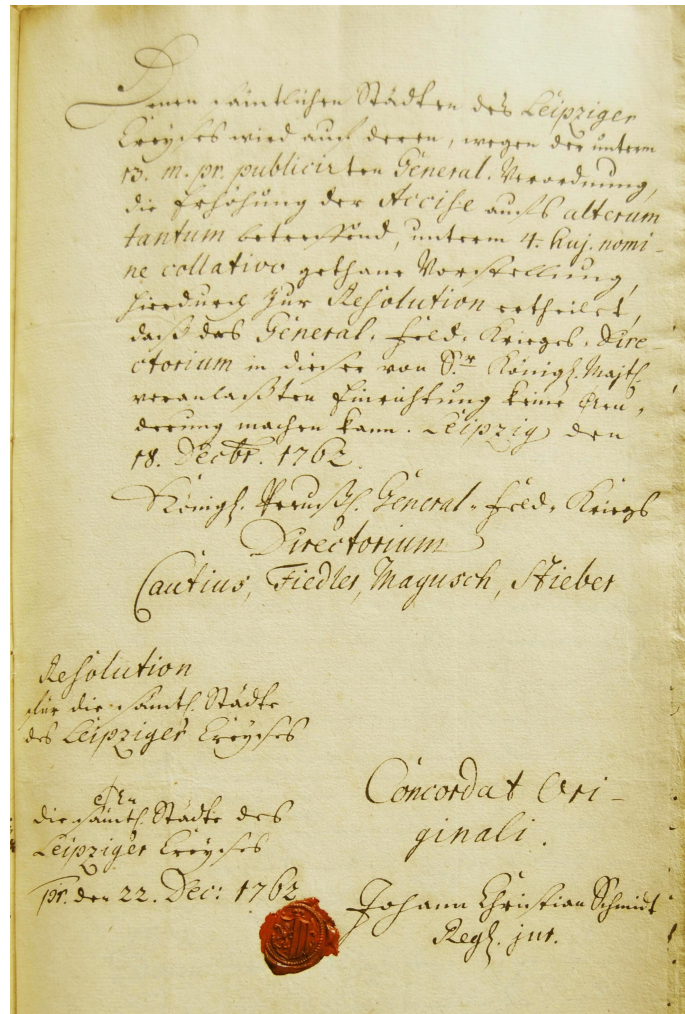 Denen sämtlichen Städten des Leipziger
Creyßes wird auf deren, wegen der unterm
13. m. pr. publicirten General-Verordnung,
die Erhöhung der Accise aufs alterum
tantum betreffend, unterm 4. huj. nomi-
ne collativo gethane Vorstellung,
hierdurch zur Resolution ertheilet,
daß das General-Feld-Kriegs-Dire-
ctorium in dieser von Sr. Königl. Majt.
veranlaßten Einrichtung keine Aen-
derung machen kann. Leipzig den
18. Decbr. 1762.
Königl. Preußl. General-Feld-Kriegs
Directorium
Cautius, Fiedler, Magusch, Stieber
Resolution
für die sämtl. Städte
des Leipziger Creyßes
die sämtl. Städte des
Leipziger Creyßes
pr. den 22. Dec: 1762
Concordat Ori-
ginali.
Johann Christian Schmidt
Regl. jur.